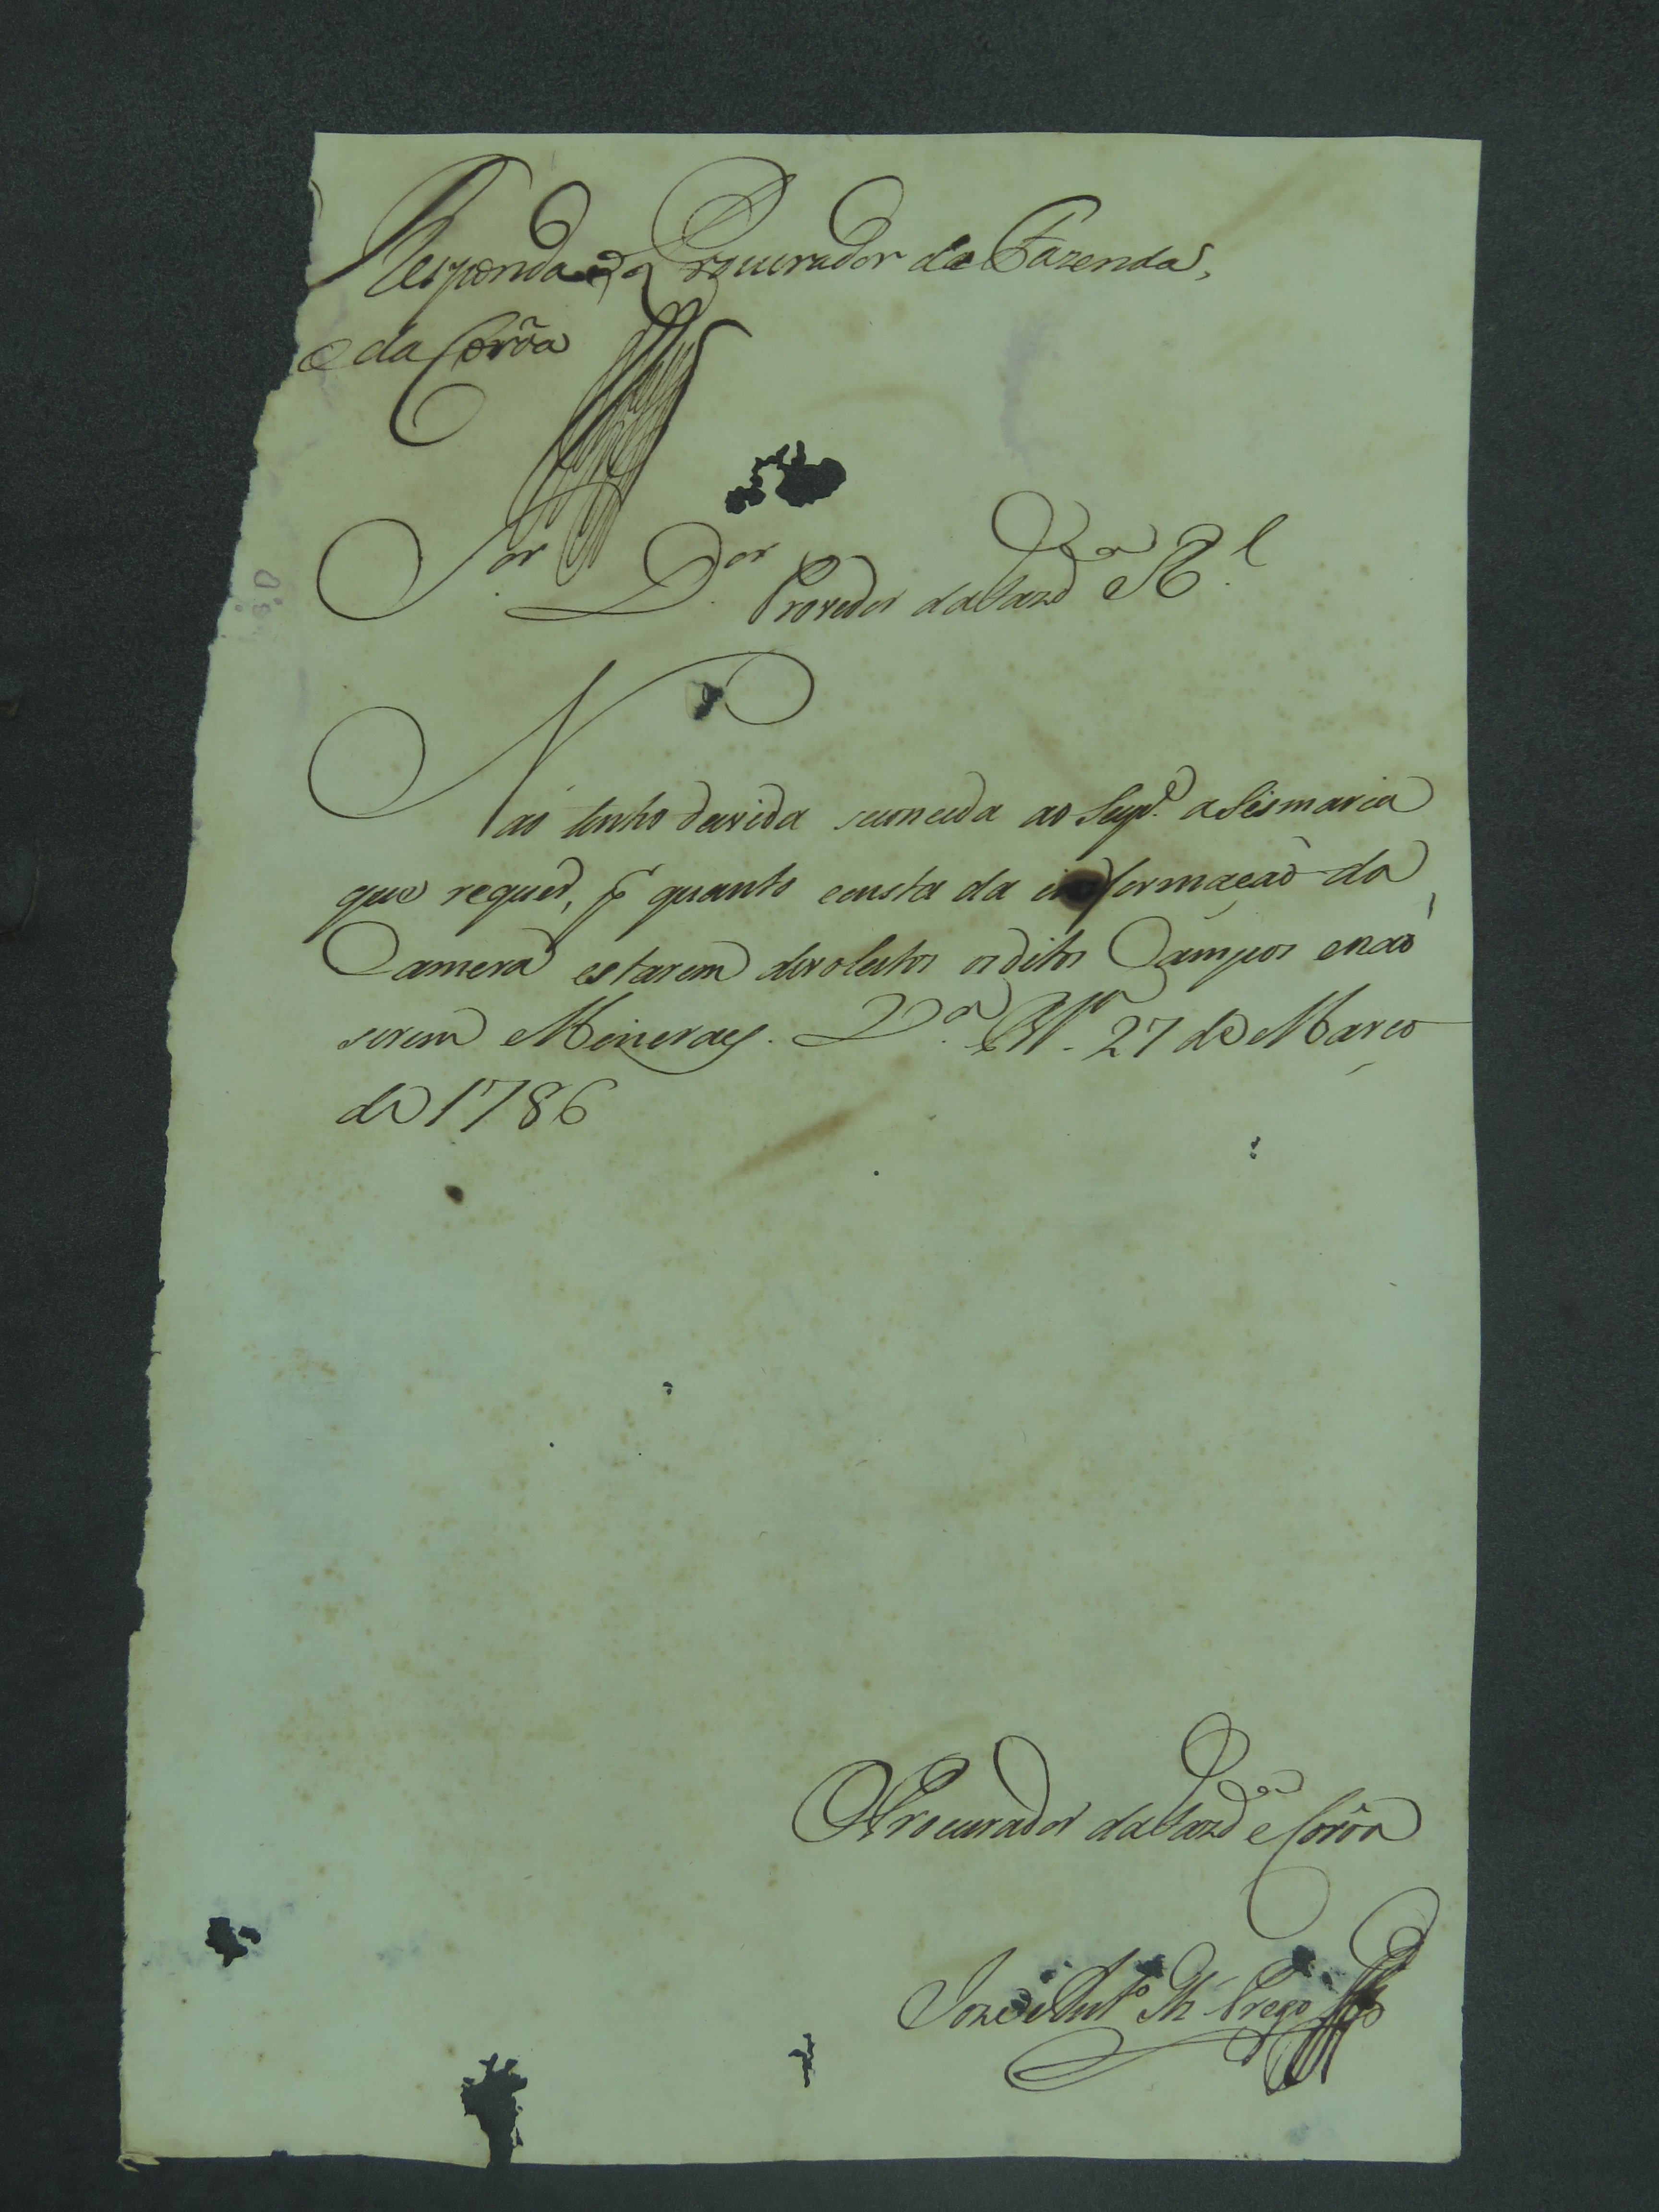 Responda o Procurador da Fazenda,
e da Corôa
S.or D.or Provedor da Fazd.a R.l
Naó tenho duvida seconceda ao Sup.e a Sismaria
que requer, p.r quanto consta da informaçaõ da
Camera estarem devolutos os ditos Campos enaõ
serem Mineraes. V.a R.a 27 de Março
de 1786
O Procurador da Fazd.a e Corôa
Joze Ant.o